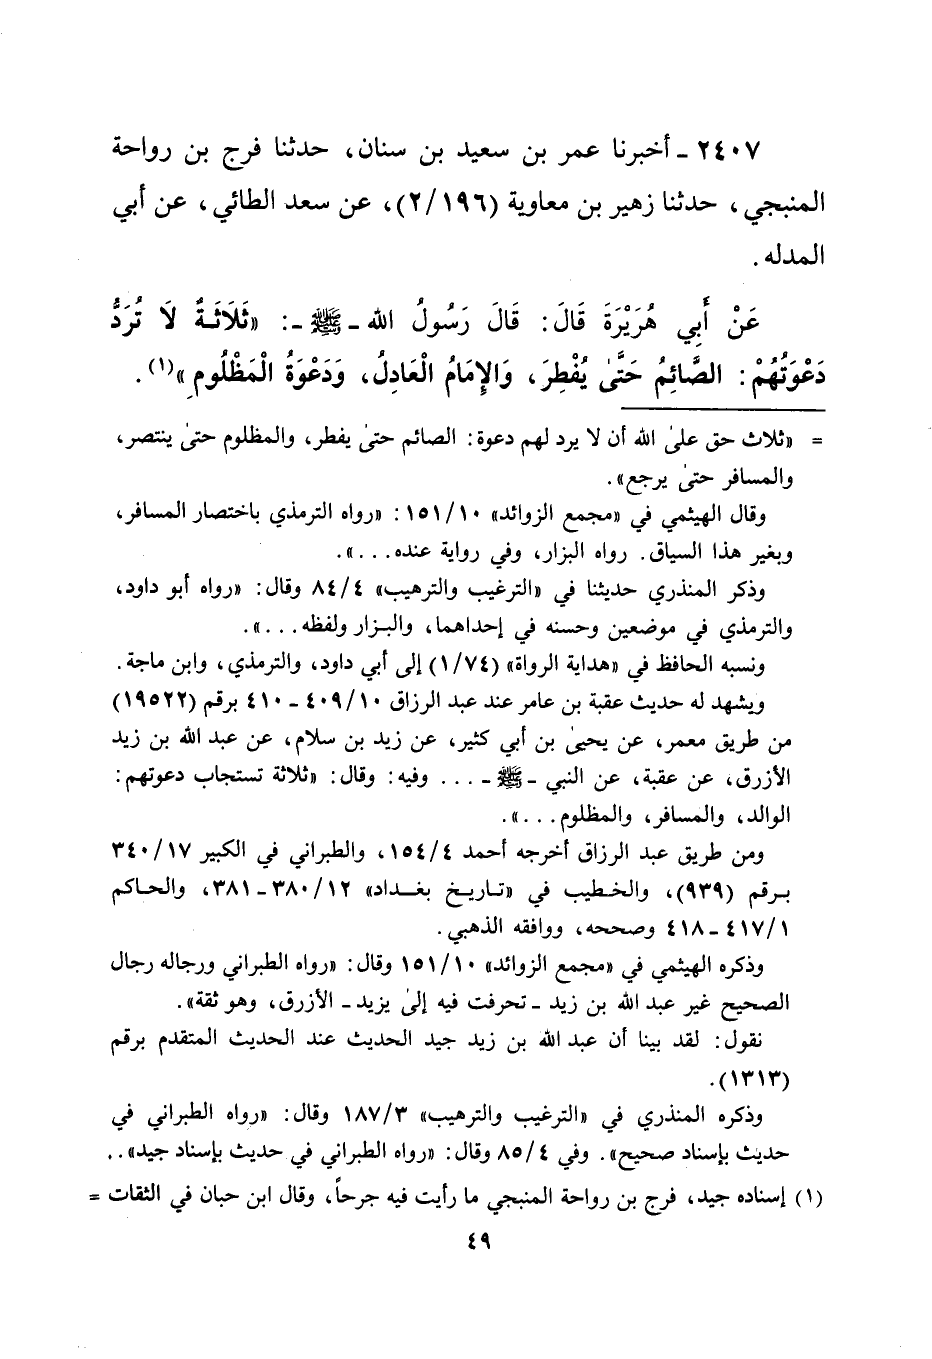 ٢٤٠٧ ـ أخبرنا عمر بن سعيد بن سنان، حدثنا فرج بن رواحة
المنبجي، حدثنا زهير بن معاوية (٢/١٩٦)، عن سعد الطائي، عن أبي
المدله.
عَنْ أَبِي هُرَيْرَةَ قَالَ: قَالَ رَسُولُ اللهِ ـ ﷺ ـ: «ثَلَاثَةٌ لَا تُرَدُّ
دَعْوَتُهُمْ: الصَّائِمُ حَتَّىٰ يُفْطِرَ، وَالإِمَامُ الْعَادِلُ، وَدَعْوَةُ الْمَظْلُومِ»(١).
= «ثلاث حق علىٰ الله أن لا يرد لهم دعوة: الصائم حتىٰ يفطر، والمظلوم حتىٰ ينتصر،
والمسافر حتىٰ يرجع».
وقال الهيثمي في «مجمع الزوائد» ١٥١/١٠: «رواه الترمذي باختصار المسافر،
وبغير هذا السياق. رواه البزار، وفي رواية عنده...».
وذكر المنذري حديثنا في «الترغيب والترهيب» ٨٤/٤ وقال: «رواه أبو داود،
والترمذي في موضعين وحسنه في إحداهما، والبزار ولفظه...».
ونسبه الحافظ في «هداية الرواة» (١/٧٤) إلى أبي داود، والترمذي، وابن ماجة.
ويشهد له حديث عقبة بن عامر عند عبد الرزاق ٤٠٩/١٠ ـ ٤١٠ برقم (١٩٥٢٢)
من طريق معمر، عن يحيىٰ بن أبي كثير، عن زيد بن سلام، عن عبد الله بن زيد
الأزرق، عن عقبة، عن النبي ـ ﷺ ـ ... وفيه: وقال: «ثلاثة تستجاب دعوتهم:
الوالد، والمسافر، والمظلوم...».
ومن طريق عبد الرزاق أخرجه أحمد ١٥٤/٤، والطبراني في الكبير ٣٤٠/١٧
برقم (٩٣٩)، والخطيب في «تاريخ بغداد» ٣٨٠/١٢ ـ ٣٨١، والحاكم
٤١٧/١ ـ ٤١٨ وصححه، ووافقه الذهبي.
وذكره الهيثمي في «مجمع الزوائد» ١٥١/١٠ وقال: «رواه الطبراني ورجاله رجال
الصحيح غير عبد الله بن زيد ـ تحرفت فيه إلىٰ يزيد ـ الأزرق، وهو ثقة».
نقول: لقد بينا أن عبد الله بن زيد جيد الحديث عند الحديث المتقدم برقم
(١٣١٣).
وذكره المنذري في «الترغيب والترهيب» ١٨٧/٣ وقال: «رواه الطبراني في
حديث بإسناد صحيح». وفي ٨٥/٤ وقال: «رواه الطبراني في حديث بإسناد جيد»..
(١) إسناده جيد، فرج بن رواحة المنبجي ما رأيت فيه جرحاً، وقال ابن حبان في الثقات =
٤٩